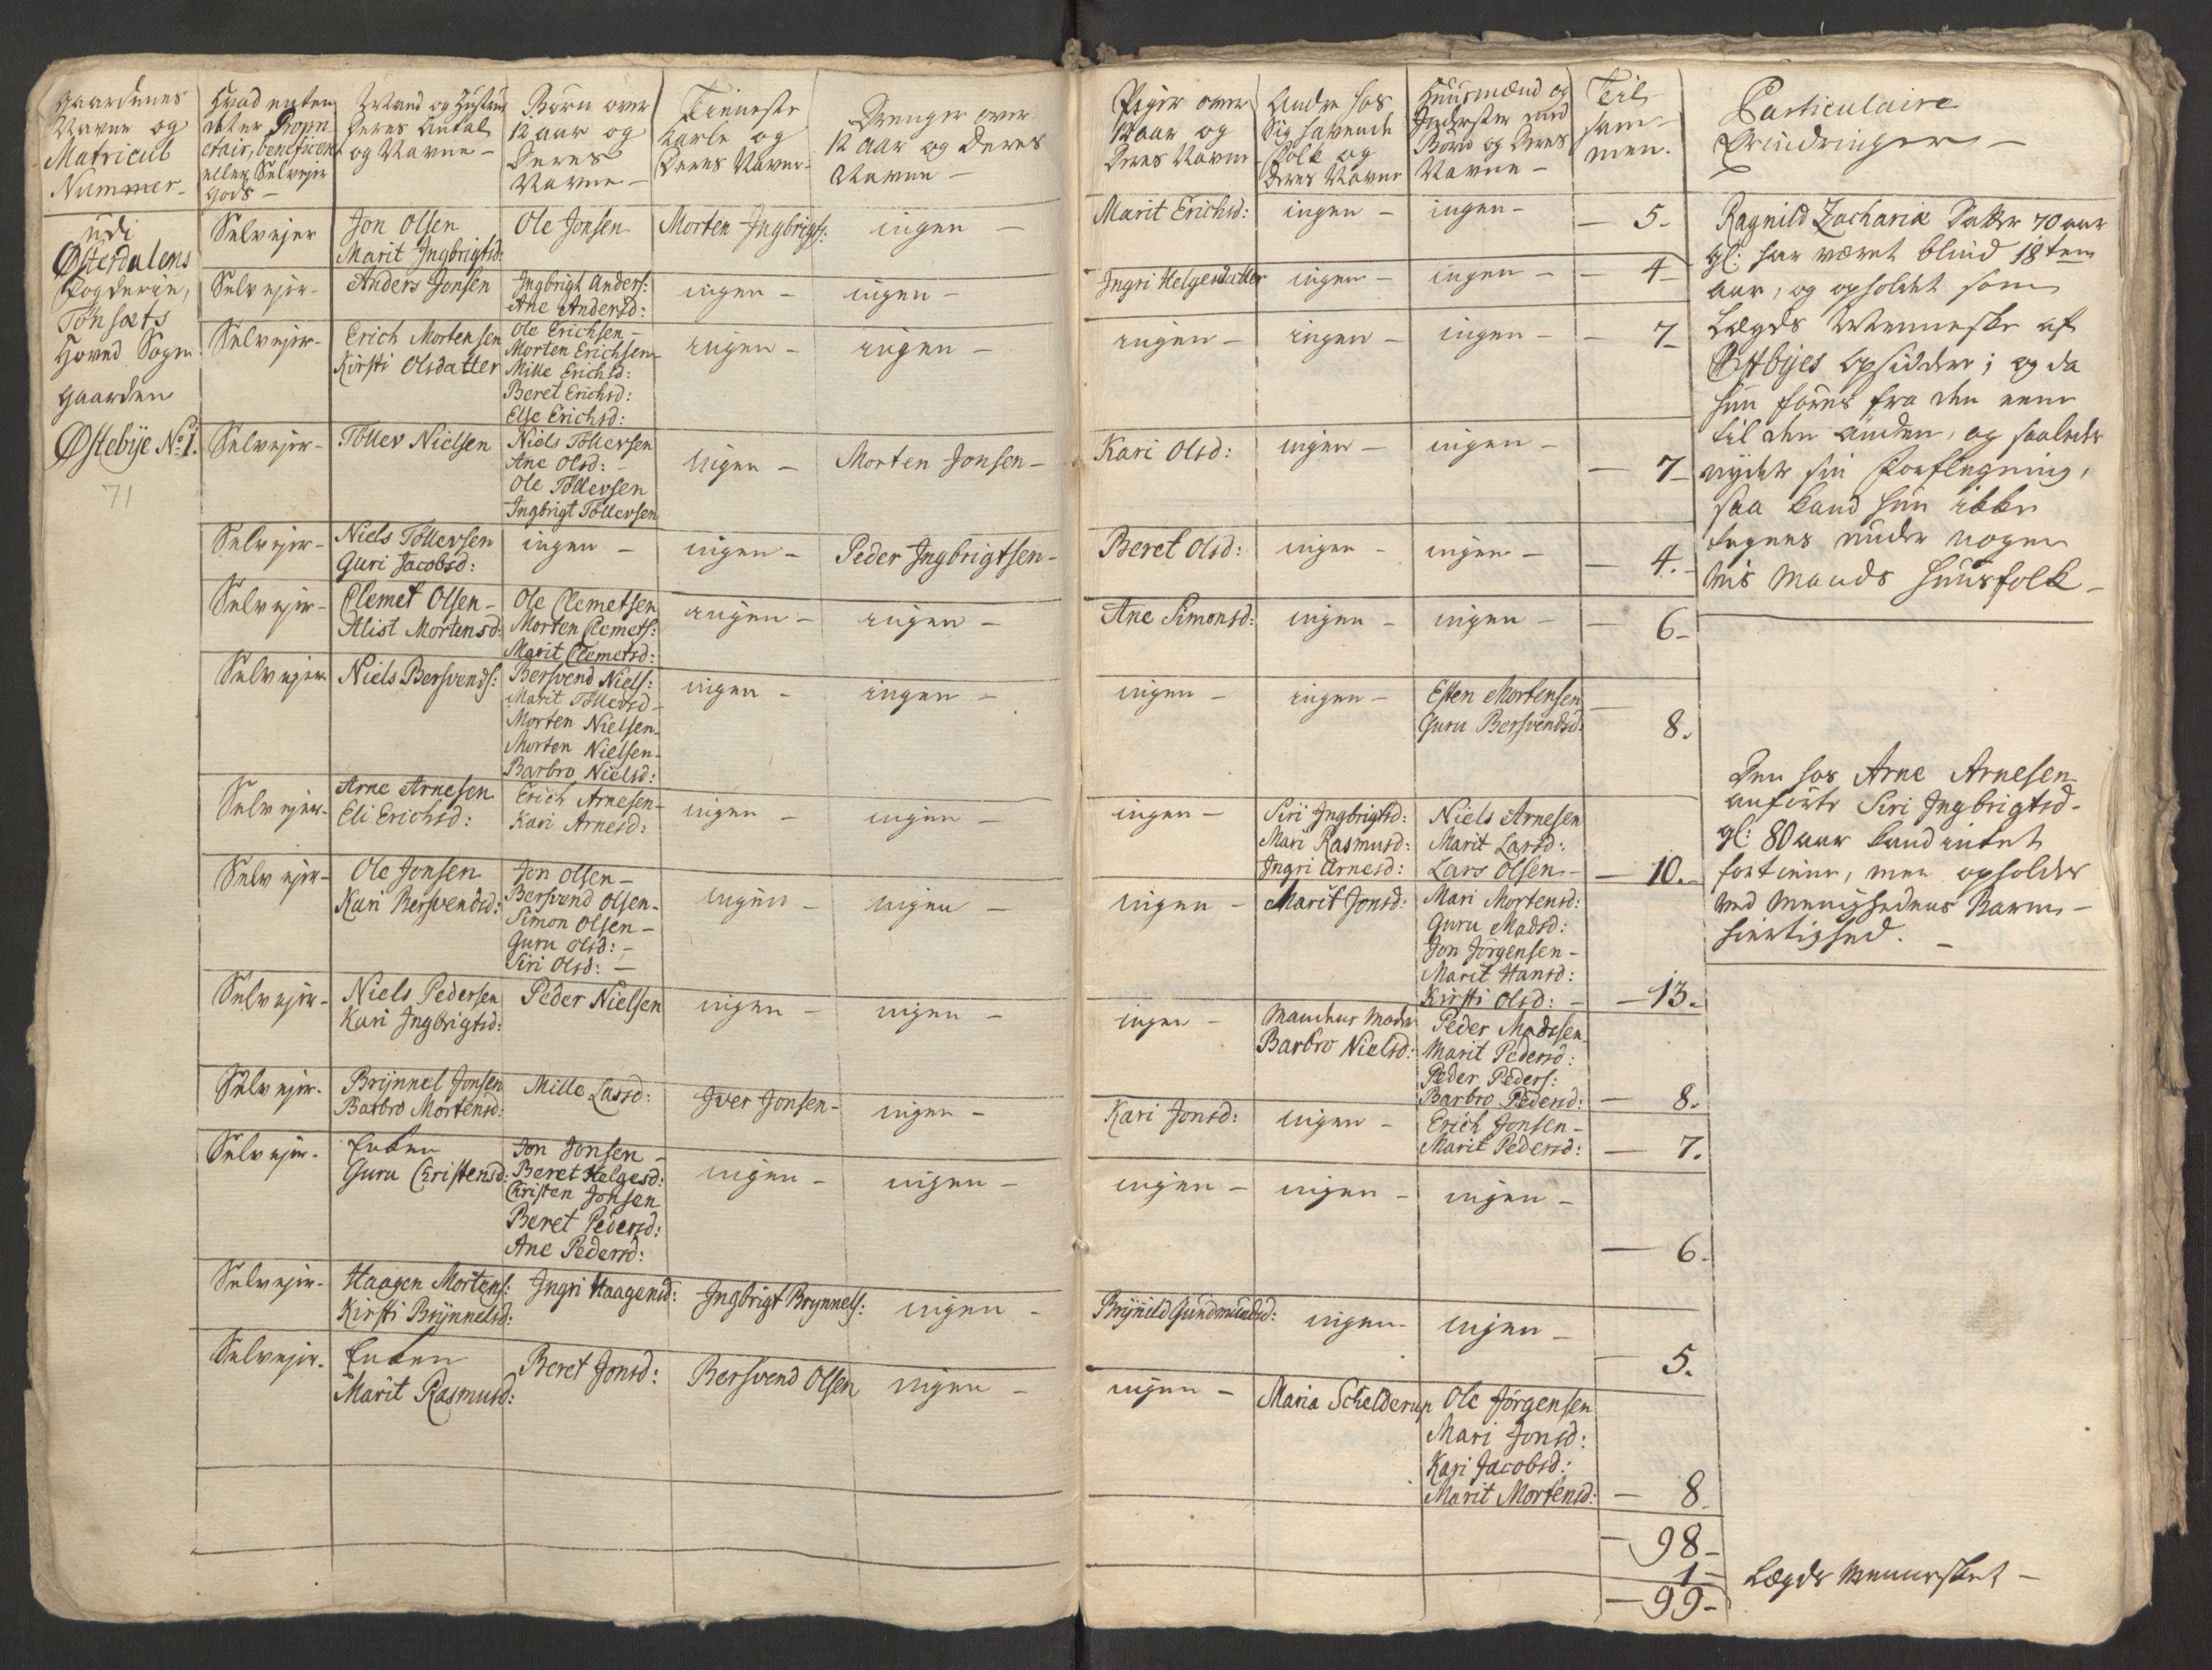 Gaardenes
Navne og
Matricul
Nummer
Hvad enten
det er Propri
etair, beneficeret
eller Selvejer
gods —
Mand og Hustru
Deres Antal
og Navne —
Børn over
12 aar og
Deres
Navne —
Tieneste
Karle og
Deres Navne
Drenge over
12 aar og deres
Navne —
Piger over
12 aar og
Deres Navne
Andre hos
sig havende
Folk og
Deres Navne
Huusmænd og
Inderster med
Børn og Deres
Navne —
Til
sam-
men.
Particulaire
Erindringer —
udi
Østerdalens
Fogderie,
Tønsæts
Hoved Sogn
gaarden
Østebÿe No. 1.
71
Selvejer
Jon Olsen
Marit Ingbrigtsd:
Ole Jonsen
Morten Ingbrigts:
ingen —
Marit Erichsd:
ingen —
ingen —
— 5 -
Selvejer -
Anders Jonsen
Ingbrigt Anders:
Ane Andersd:
ingen —
ingen —
Ingri Helgesdatter
ingen —
ingen —
— 4 -
Selvejer -
Erich Mortensen
Kirsti Olsdatter
Ole Erichsen —
Morten Erichsen
Mille Erichsd:
Beret Erichsd:
Else Erichsd:
ingen —
ingen —
ingen —
ingen —
ingen —
— 7 -
Selvejer -
Töller Nielsen
Niels Töllersen
Ane Olsd: -
Ole Töllersen
Ingbrigt Töllersen
ingen —
Morten Jonsen —
Kari Olsd:
ingen —
ingen —
— 7 -
Selvejer -
Niels Töllersen
Guri Jacobsd:
ingen —
ingen —
Peder Ingbrigtsen -
Beret Olsd:
ingen -
ingen —
— 4. -
Selvejer -
Clemet Olsen -
Alist Mortensd:
Ole Clemetsen
Morten Clemets:
Marit Clemetsd:
ingen —
ingen —
Ane Simonsd:
ingen -
ingen —
— 6 -
Selvejer
Niels Bersvends:
Bersvend Niels:
Marit Töllersd -
Morten Nielsen -
Morten Nielsen -
Barbro Nielsd:
ingen —
ingen —
ingen —
ingen —
Esten Mortensen
Guru Bersvendsd:
— 8.
Selvejer -
Arne Arnesen
Eli Erichsd:
Erich Arnesen -
Kari Arnesd:
ingen —
ingen —
ingen —
Siri Ingbrigtsd:
Mari Rasmusd:
Ingri Arnesd:
Niels Arnesen
Marit Larsd:
Lars Olsen -
— 10. -
Selvejer -
Ole Jonsen
Kari Bersvendsd:
Jon Olsen —
Bersvend Olsen -
Simon Olsen —
Guru Olsd: -
Siri Olsd: —
ingen —
ingen —
ingen —
Marit Jonsd:
Mari Mortensd:
Guru Madsd:
Jon Jörgensen -
Marit Hansd:
Kirsti Olsd: -
— 13.
Selvejer -
Niels Pedersen
Kari Ingbrigtsd:
Peder Nielsen
ingen —
ingen —
ingen —
Mandens Moder
Barbro Nielsd:
Peder Madssen
Marit Pedersd:
Peder Peders:
Barbro Pedersd:
— 8.
Selvejer -
Brÿnnel Jonsen
Barbro Mortensd:
Mille Larsd:
Iver Jonsen -
ingen —
Kari Jonsd:
ingen —
Erich Jonsen -
Marit Pedersd:
— 7.
Selvejer -
Enken
Guru Christensd:
Jon Jonsen -
Beret Helgesd:
Christen Jonsen
Beret Pedersd:
Ane Pedersd:
ingen —
ingen —
ingen —
ingen —
ingen —
— 6.
Selvejer -
Haagen Mortens:
Kirsti Brÿnnelsd:
Ingri Haagensd:
Ingbrigt Brynnels:
ingen —
Brÿnild Gundmundsd:
ingen -
ingen —
— 5.
Selvejer -
Enken
Marit Rasmusd:
Beret Jonsd:
Bersvend Olsen
ingen —
ingen —
Maria Schelderup
Ole Jörgensen
Mari Jonsd:
Kari Jacobsd:
Marit Mortensd:
— 8
— 98 -
1 -
— 99 -
Lægds Mennesket —
Ragnild Zachariæ Datter 70 aar
gl: har været blind 18 ten
aar, og opholdt som
Lægds Menneske af
Østbÿes Opsiddere; og da
hun føres fra den eene
til den anden, og saaledes
nyder sin Forflegning,
saa kand hun ikke
tegnes under nogen
vis Mands Huusfolk —
Den hos Arne Arnesen
anførte Siri Ingbrigtsd -
gl: 80 aar kand intet
fortiene, men opholdes
ved Menighedens Barm-
hiertighed. —